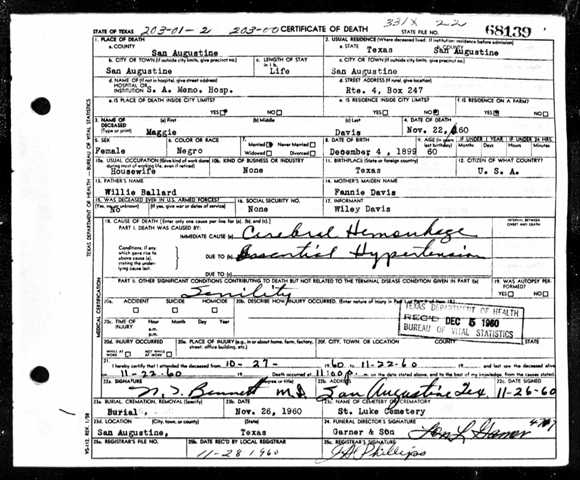 STATE OF TEXAS 203-01-2 203-00 CERTIFICATE OF DEATH 331X 22 STATE FILE NO. 68139
1. PLACE OF DEATH
a. COUNTY San Augustine
2. USUAL RESIDENCE (Where deceased lived. If institution: residence before admission)
a. STATE Texas b. COUNTY San Augustine
b. CITY OR TOWN (If outside city limits, give precinct no.) San Augustine
c. LENGTH OF STAY in 1 b. Life
c. CITY OR TOWN (If outside city limits, give precinct no.) San Augustine
d. NAME OF (If not in hospital, give street address) HOSPITAL OR INSTITUTION S. A. Memo. Hosp.
d. STREET ADDRESS (If rural, give location) Rte. 4, Box 247
e. IS PLACE OF DEATH INSIDE CITY LIMITS? YES NO
e. IS RESIDENCE INSIDE CITY LIMITS? YES NO
f. IS RESIDENCE ON A FARM? YES NO
3. NAME OF DECEASED (Type or print) (a) First Maggie (b) Middle (c) Last Davis
4. DATE OF DEATH Nov. 22, 60
5. SEX Female
6. COLOR OR RACE Negro
7. Married Never Married Widowed Divorced
8. DATE OF BIRTH December 4, 1899
9. AGE (In years last birthday) 60
IF UNDER 1 YEAR Months Days
IF UNDER 24 HRS. Hours Minutes
10a. USUAL OCCUPATION (Give kind of work done during most of working life, even if retired) Housewife
10b. KIND OF BUSINESS OR INDUSTRY None
11. BIRTHPLACE (State or foreign country) Texas
12. CITIZEN OF WHAT COUNTRY? U. S. A.
13. FATHER'S NAME Willie Ballard
14. MOTHER'S MAIDEN NAME Fannie Davis
15. WAS DECEASED EVER IN U.S. ARMED FORCES? (Yes, no, or unknown) (If yes, give war or dates of service) No
16. SOCIAL SECURITY NO. None
17. INFORMANT Wiley Davis
18. CAUSE OF DEATH [Enter only one cause per line for (a), (b), and (c).]
INTERVAL BETWEEN ONSET AND DEATH
PART I. DEATH WAS CAUSED BY:
IMMEDIATE CAUSE (a) Cerebral Hemorrhage
Conditions, if any, which gave rise to above cause (a), stating the underlying cause last.
DUE TO (b) Essential Hypertension
DUE TO (c)
PART II. OTHER SIGNIFICANT CONDITIONS CONTRIBUTING TO DEATH BUT NOT RELATED TO THE TERMINAL DISEASE CONDITION GIVEN IN PART I (a)
Senility
19. WAS AUTOPSY PERFORMED? YES NO
20a. ACCIDENT SUICIDE HOMICIDE
20b. DESCRIBE HOW INJURY OCCURRED. (Enter nature of injury in Part I or Part II of item 18.)
TEXAS DEPARTMENT OF HEALTH
REC'D DEC 5 1960
BUREAU OF VITAL STATISTICS
20c. TIME OF INJURY Hour Month Day Year
a.m.
p.m.
20d. INJURY OCCURRED WHILE AT WORK NOT WHILE AT WORK
20e. PLACE OF INJURY (e.g. in or about home, farm, factory, street, office building, etc.)
20f. CITY, TOWN, OR LOCATION COUNTY STATE
21. I hereby certify that I attended the deceased from 10-27- 1960 to 11-22-60 and last saw the deceased alive
11-22-60 Death occurred at 11:00 p. m. on the date stated above, and to the best of my knowledge, from the causes stated.
22a. SIGNATURE (Degree or title) Bennett M.D.
22b. ADDRESS San Augustine Tex
22c. DATE SIGNED 11-26-60
23a. BURIAL, CREMATION, REMOVAL (Specify) Burial
23b. DATE Nov. 26, 1960
23c. NAME OF CEMETERY OR CREMATORY St. Luke Cemetery
23d. LOCATION (City, town, or county) (State) San Augustine, Texas
24. FUNERAL DIRECTOR'S SIGNATURE Garner & Son
25a. REGISTRAR'S FILE NO.
25b. DATE REC'D BY LOCAL REGISTRAR 11-28 1960
25c. REGISTRAR'S SIGNATURE Phillips
TEXAS DEPARTMENT OF HEALTH - BUREAU OF VITAL STATISTICS
MEDICAL CERTIFICATION
VS-112, REV. 1/58